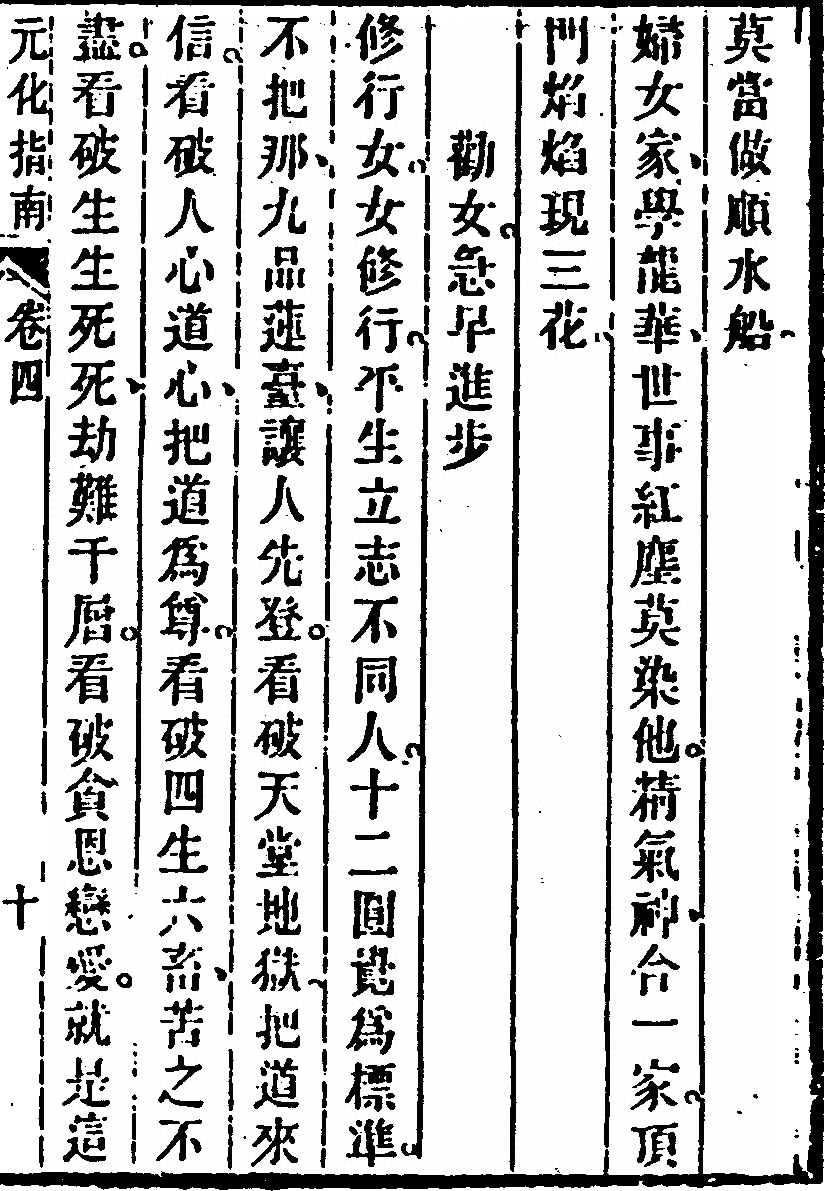 莫當做順水船。
婦女家、學龍華、世事紅塵莫染他。精氣神、合一家。頂
門焰焰現三花。
勸女急早進步
修行女。女修行。平生立志不同人。十二圓覺爲標準。
不把那、九品蓮臺、讓人先登。看破天堂地獄、把道來
信。看破人心道心、把道爲尊。看破四生六畜、苦之不
盡。看破生生死死、劫難千層。看破貪恩戀愛。就是這
元化指南 卷四 十